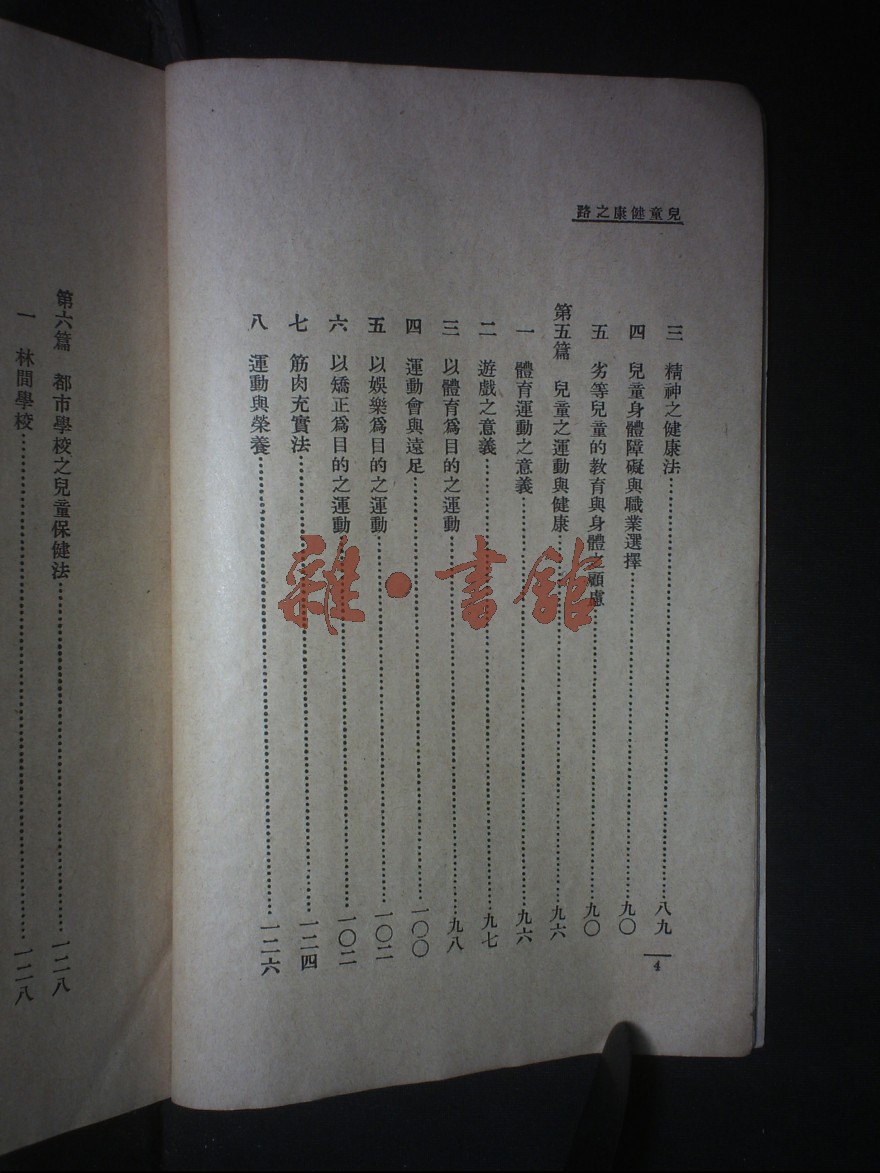 兒童健康之路
三 精神之健康法……八九
四 兒童身體障礙與職業選擇……九〇
五 劣等兒童的教育與身體之顧慮……九〇
第五篇 兒童之運動與健康……九六
一 體育運動之意義……九六
二 遊戲之意義……九七
三 以體育爲目的之運動……九八
四 運動會與遠足……一〇〇
五 以娛樂爲目的之運動……一〇二
六 以矯正爲目的之運動……一〇二
七 筋肉充實法……一二四
八 運動與榮養……一二六
4
第六篇 都市學校之兒童保健法……一二八
一 林間學校……一二八
雜·書館